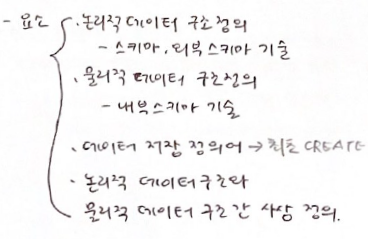 - 요소
· 논리적 데이터 구조정의
- 스키마, 외부스키마 기술
· 물리적 데이터 구조정의
- 내부스키마 기술
· 데이터 저장 정의어 → 최초 CREATE
· 논리적 데이터구조와
물리적 데이터 구조 간 사상 정의.